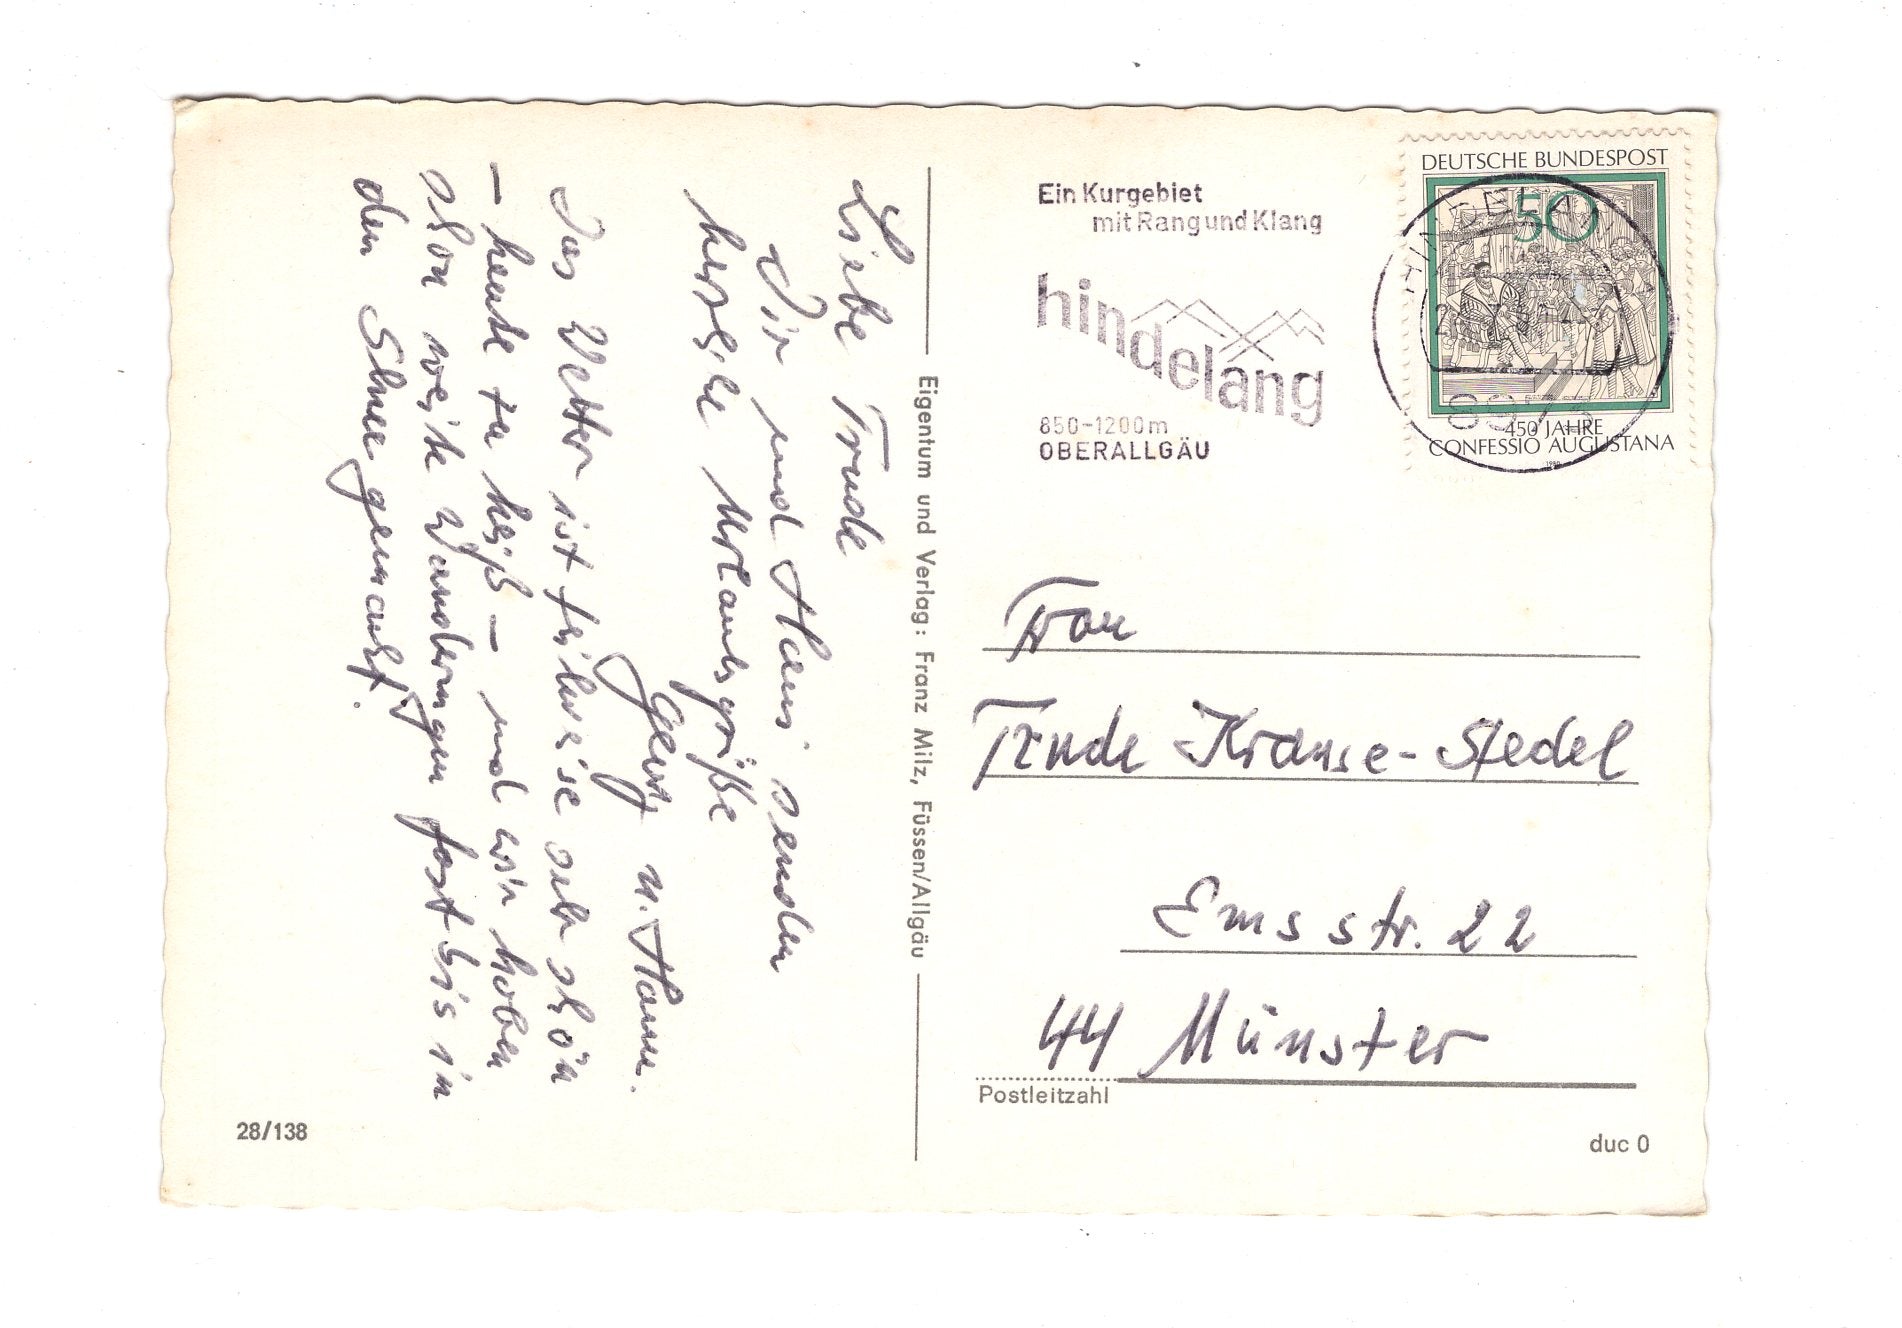 Liebe Trude
Dir und Hans senden
herzliche Urlaubsgrüße
Georg u. Hanne.
Das Wetter ist teilweise sehr schön
– heute zu heiß – und wir haben
schon weite Wanderungen fast bis in
den Schnee gemacht.
Eigentum und Verlag: Franz Milz, Füssen/Allgäu
28/138
Ein Kurgebiet
mit Rang und Klang
hindelang
850-1200m
OBERALLGÄU
DEUTSCHE BUNDESPOST
50
450 JAHRE
CONFESSIO AUGUSTANA
1980
Frau
Trude Krause-Stedel
Emsstr. 22
44 Münster
Postleitzahl
duc 0